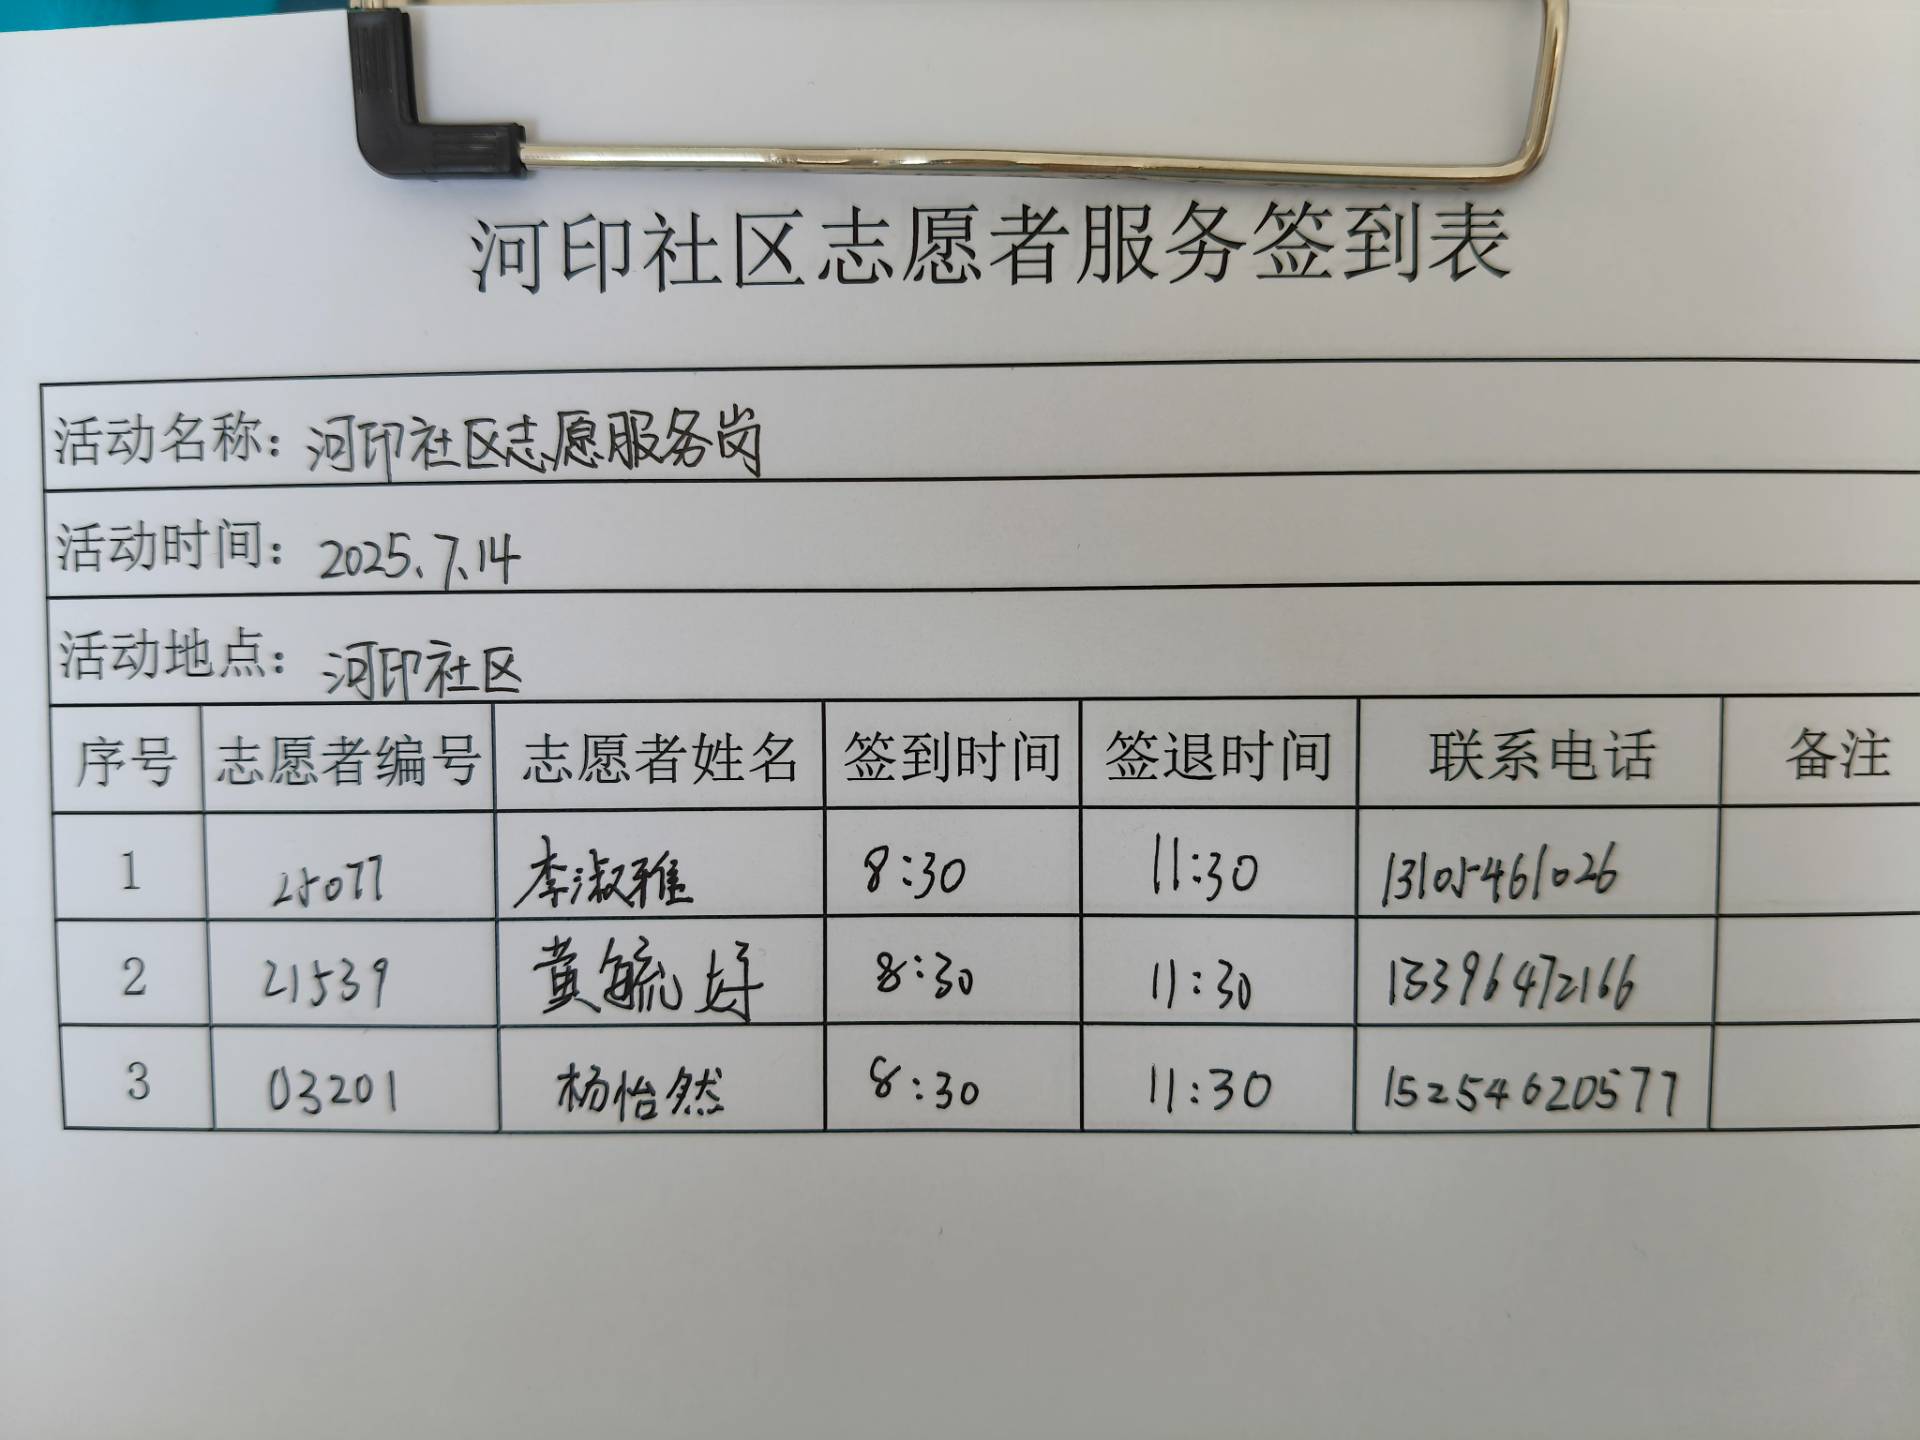 河印社区志愿者服务签到表
活动名称：河印社区志愿服务岗
活动时间：2025.7.14
活动地点：河印社区
序号 志愿者编号 志愿者姓名 签到时间 签退时间 联系电话 备注
1 25077 李淑雅 8:30 11:30 13105461026
2 21539 黄毓婷 8:30 11:30 13396472166
3 03201 杨怡然 8:30 11:30 15254620577